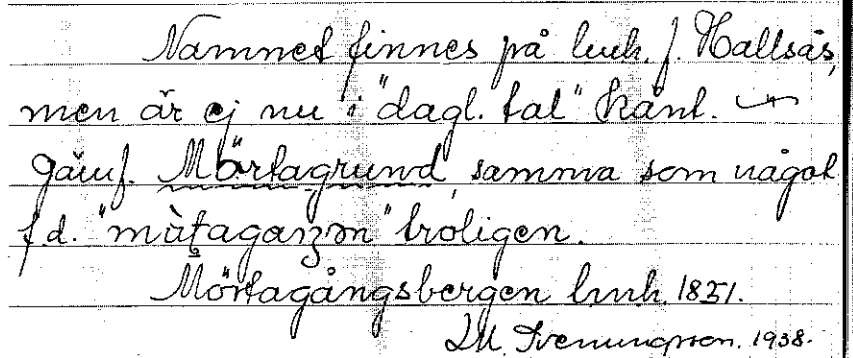 Namnet finnes på lmk. f. Hallsås,
men är ej nu i "dagl. tal" känt.
Jämf. Mörtagrund, samma som något
f.d. troligen.
Mörtagångsbergen lmk. 1851.
1938.